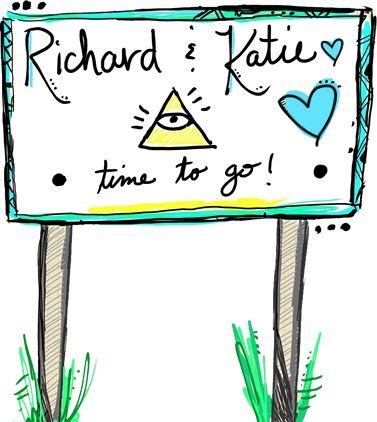 Richard & Katie
time to go!